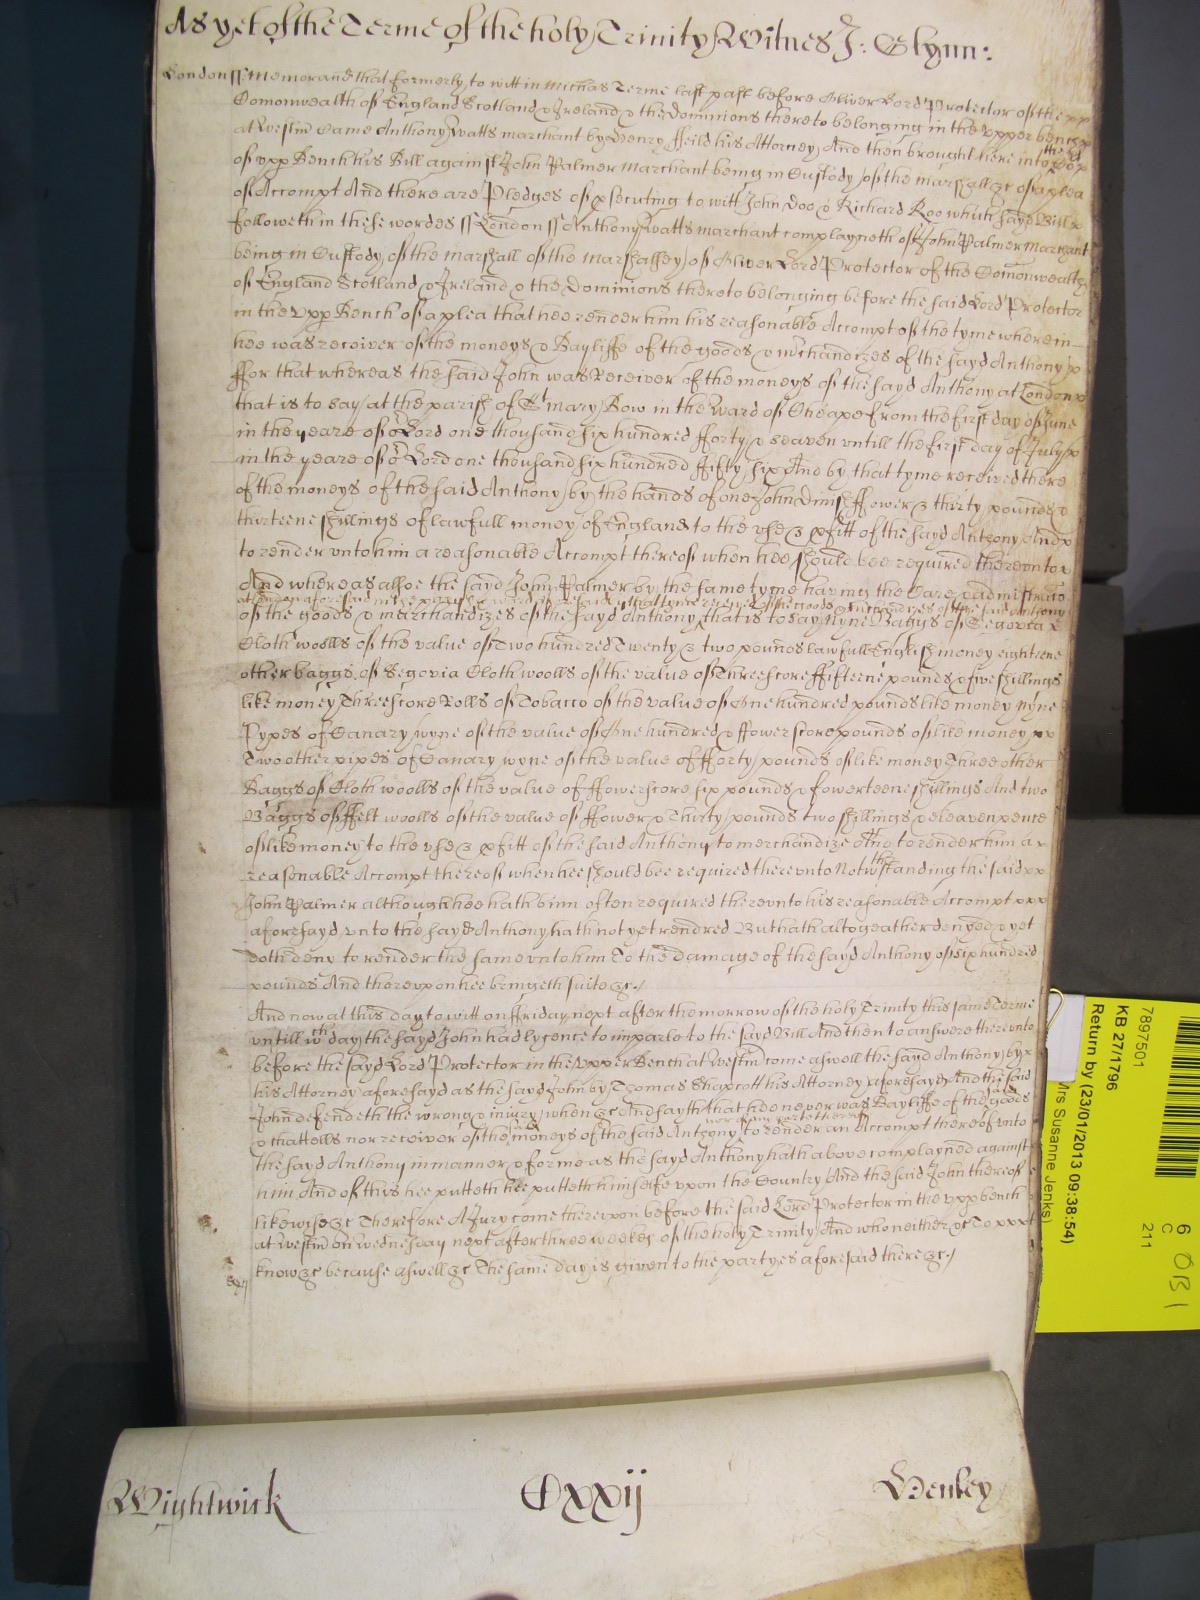 As yet of the Terme of the holy Trinity Witnes J: Glynn:
London ss Memorand that formerly to witt in Michas Terme last past before Oliver Lord Protector of the xx
Comonwealth of England Scotland & Ireland & the Dominions thereto belonging in the upper bench
at Westm Came Anthony Watts marchant by Henry Feild his Attorney And then brought here into the sd Cort
of upp Bench his Bill against John Palmer Marchant being in Custody of the marshall &c of a plea
of Accompt And there are Pledges of psecuting to witt John Doo & Richard Roo which sayd Bill x
followeth in these wordes ss London ss Anthony Watts marchant complayneth of John Palmer Marchant
being in Custody of the marshall of the marshallsey of Oliver Lord Protector of the Comonwealth
of England Scotland & Ireland & the Dominions thereto belonging before the said Lord Protector
in the upp Bench of a plea that hee render him his reasonable Accompt of the tyme wherein
hee was receiver of the moneys & Bayliffe of the goods & mchandizes of the sayd Anthony
ffor that whereas the said John was Receiver of the moneys of the sayd Anthony at London
that is to say at the parish of St Mary Bow in the Ward of Cheape from the first day of June
in the yeare of or Lord one thousand six hundred fforty & seaven untill the first day of July x
in the yeare of or Lord one thousand six hundred ffifty six And by that tyme received there
of the moneys of the said Anthony by the hands of one John ffower & thirty pounds &
thirteene shillings of lawfull money of England to the use & pfitt of the sayd Anthony And x
to render unto him a reasonable Accompt thereof when hee should bee required thereunto
And whereas allsoe the sayd John Palmer by the same tyme having the Care & administracon
at London aforesaid in the parish & ward aforesaid by that tyme received of the goods & mchandizes of the said Anthony
of the goods & marchandizes of the sayd Anthony that is to say Nyne Baggs of Segovia x
Cloth woolls of the value of Two hundred Twenty & two pounds lawfull English money eighteene
other baggs of Segovia Cloth woolls of the value of Threescore ffifteene pounds & five shillings
like money Threescore Rolls of Tobacco of the value of One hundred pounds like money Nyne
Pypes of Canary wyne of the value of One hundred & ffowerscore pounds of like money xx
Two other pipes of Canary wyne of the value of fforty pounds of like money Three other
Baggs of Cloth woolls of the value of ffowerscore six pounds & fowerteene shillings And two
Baggs of ffelt woolls of the value of ffower & Thirty pounds two shillings & eleaven pence
of like money to the use & pfitt of the said Anthony to merchandize And to render him a x
reasonable Accompt thereof when hee should bee required thereunto Notwthstanding the said xx
John Palmer although hee hath binn often required thereunto his reasonable Accompt xxx
aforesayd unto the sayd Anthony hath not yet rendred But hath altogeather denyed & yet
doth deny to render the same unto him To the damage of the sayd Anthony of six hundred
pounds And thereupon hee bringeth suite &c./
And now at this day to witt on ffriday next after the morrow of the holy Trinity this same Terme
untill wch day the sayd John had lycence to imparle to the sayd Bill And then to answere thereunto
before the sayd Lord Protector in the Upper Bench at Westm come aswell the sayd Anthony by x
his Attorney aforesayd as the sayd John by Thomas Shapcott his Attorney aforesayd And the said
John defendeth the wrong & iniury when &c And sayth that hee never was Bayliffe of the said goods
& chattells nor receiver of the said moneys of the said Anthony to render an Accompt thereof unto
the sayd Anthony in manner & forme as the sayd Anthony hath above complayned against
him And of this hee putteth hee putteth himselfe upon the Country And the said John thereof
likewise &c Therefore A Jury come thereupon before the said Lord Protector in the upp bench
at Westm on Wednesday next after three weekes of the holy Trinity And who neither &c To xxx
know &c because aswell &c The same day is given to the partyes aforesaid there &c./
Wightwick Cxxij Henley
7897501
KB 27/1796
Return by (23/01/2013 09:38:54)
Mrs Susanne Jenks)
6
C
211